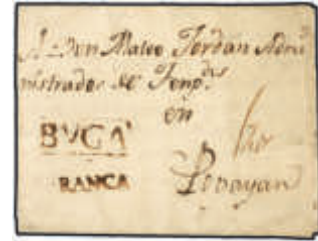 A Don Mateo Jordan Admi
nistrador de Temp.
en
BVGA
FRANCA
Popayan